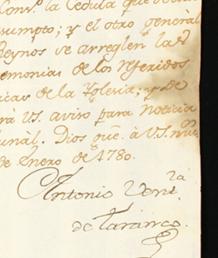 Con.ᵗᵃ la Cedula que
sumpto; y el otro general
Reynos se arreglen la
emonias de los referidos
de la Yglesia; y de
ra V.S. aviso para noticia
unal. Dios gue. à V.S. mu.ˢ
de Enero de 1780.
Antonio Vent.ʳᵃ
de Taranco.